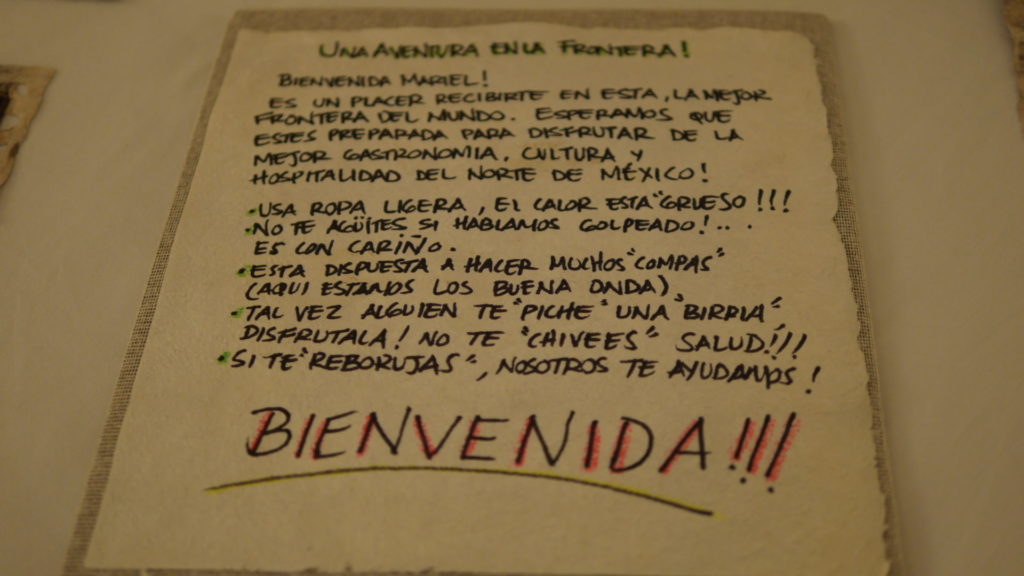 UNA AVENTURA EN LA FRONTERA!
BIENVENIDA MARIEL!
ES UN PLACER RECIBIRTE EN ESTA, LA MEJOR
FRONTERA DEL MUNDO. ESPERAMOS QUE
ESTES PREPARADA PARA DISFRUTAR DE LA
MEJOR GASTRONOMIA, CULTURA Y
HOSPITALIDAD DEL NORTE DE MÉXICO!
•USA ROPA LIGERA, EL CALOR ESTA "GRUESO!!!
•NO TE AGÜITES SI HABLAMOS GOLPEADO!...
ES CON CARIÑO.
•ESTA DISPUESTA A HACER MUCHOS "COMPAS"
(AQUI ESTAMOS LOS BUENA ONDA).
•TAL VEZ ALGUIEN TE "PICHE" UNA "BIRRIA"
DISFRUTALA! NO TE "CHIVEES" SALUD!!!
•SI TE "REBORUJAS", NOSOTROS TE AYUDAMOS!
BIENVENIDA!!!